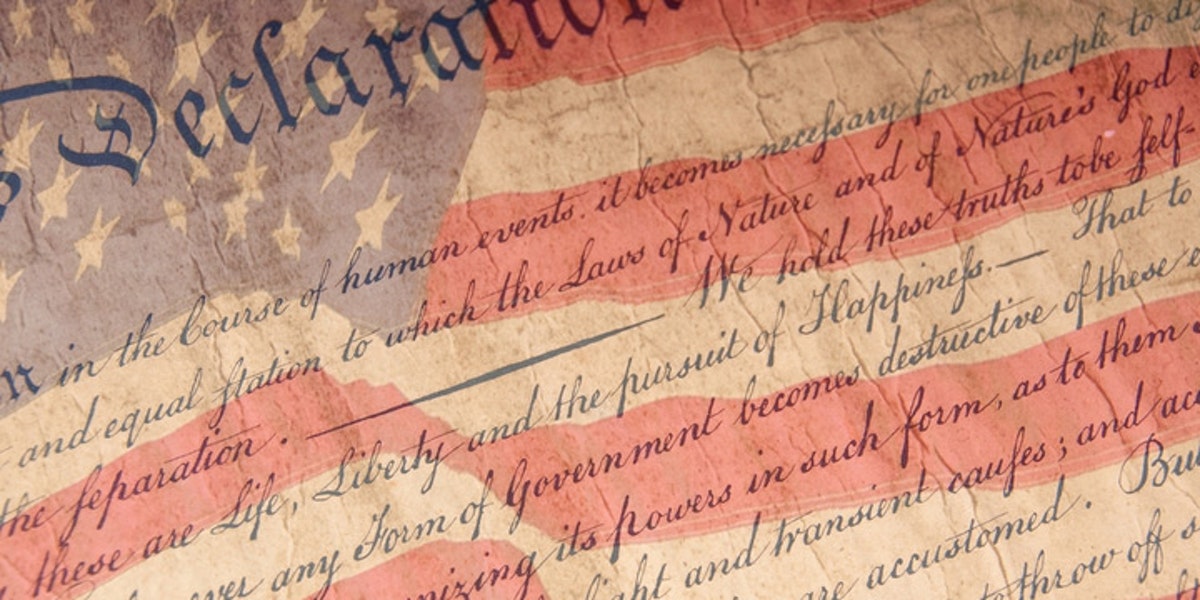 Declaration
n in the Course of human events. it becomes neceſsary for one people to di
and equal ſtation to which the Laws of Nature and of Nature's God e
the ſeparation. — We hold these truths to be ſelf-
these are Life, Liberty and the pursuit of Happineſs. — That to
ver any Form of Government becomes destructive of these e
nizing its powers in such form, as to them s
light and transient cauſes; and acc
are accustomed. Bu
to throw off s